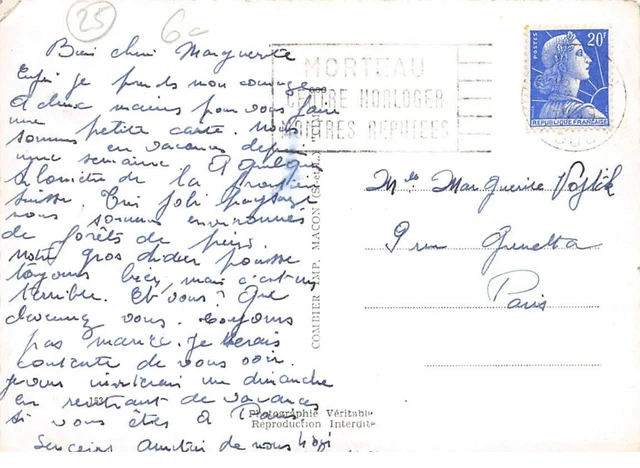 25
6a
Bien chère Marguerite
Enfin je prends mon courage
à deux mains pour vous faire
une petite carte. Nous
sommes en vacances depuis
une semaine à quelques
kilomètre de la frontière
Suisse. Très joli paysage
nous sommes environnés
de forêts de pins.
notre gros didier pousse
toujours bien, mais c'est un
terrible. Et vous? Que
devenez vous. toujours
pas mariée. Je serais
contente de vous voir.
je vous inviterai un dimanche
en rentrant de vacances
si vous êtes à Paris.
amitiés de nous
MORTEAU
CENTRE HORLOGER
REPUTEES
POSTES
20F
REPUBLIQUE FRANÇAISE
COMBIER IMP. MACON
Mlle Marguerite
9 rue
Paris
Photographie Véritable
Reproduction Interdite